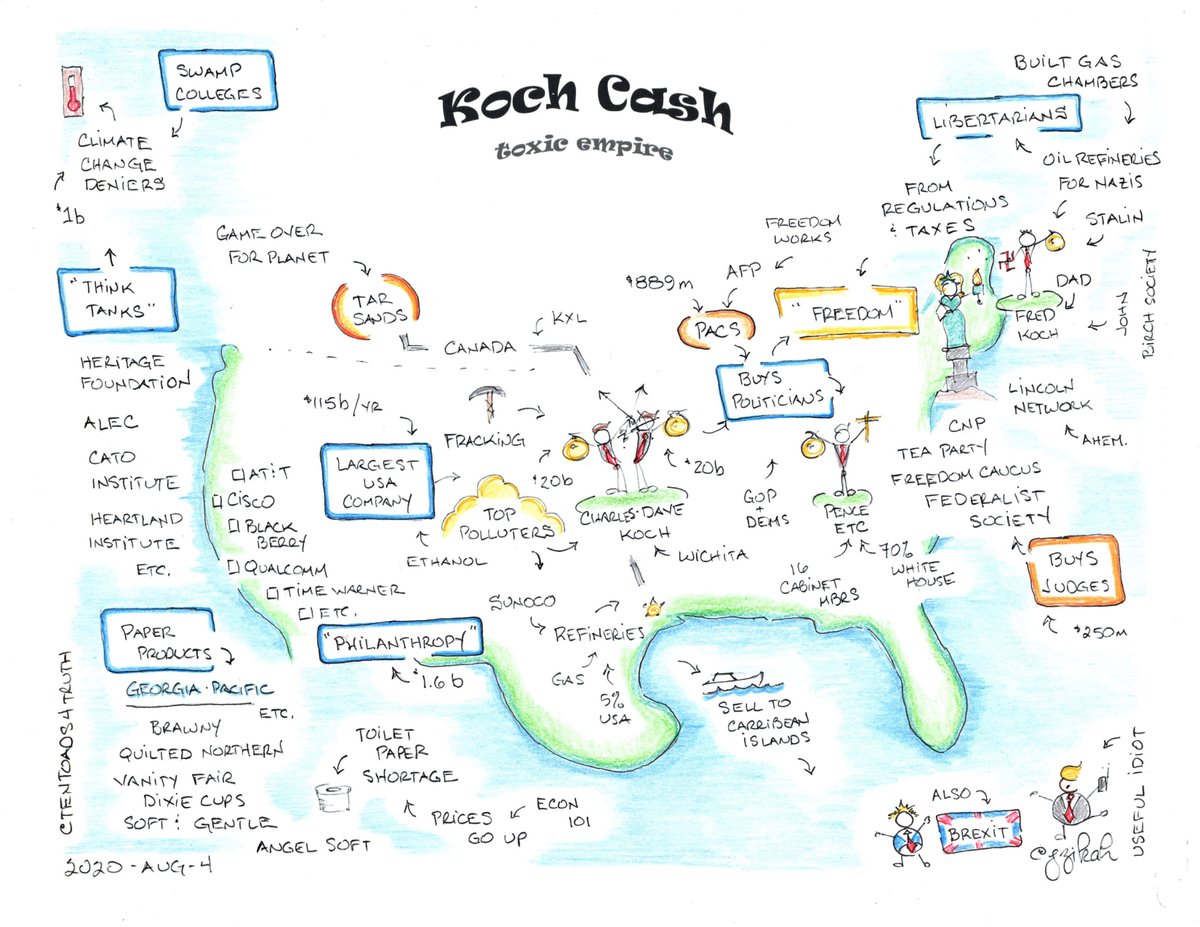 Koch Cash
toxic empire
SWAMP
COLLEGES
CLIMATE
CHANGE
DENIERS
$1b
"THINK
TANKS"
HERITAGE
FOUNDATION
ALEC
CATO
INSTITUTE
HEARTLAND
INSTITUTE
ETC.
GAME OVER
FOR PLANET
TAR
SANDS
CANADA
KXL
$115b/YR
LARGEST
USA
COMPANY
FRACKING
TOP
POLLUTERS
ETHANOL
$20b
CHARLES·DAVE
KOCH
$20b
WICHITA
AT&T
CISCO
BLACK
BERRY
QUALCOMM
TIME WARNER
ETC.
"PHILANTHROPY"
$1.6b
SUNOCO
REFINERIES
GAS
5%
USA
FREEDOM
WORKS
AFP
$889m
PACS
"FREEDOM"
BUYS
POLITICIANS
GOP
+
DEMS
PENCE
ETC
16
CABINET
MBRS
70%
WHITE
HOUSE
BUILT GAS
CHAMBERS
LIBERTARIANS
OIL REFINERIES
FOR NAZIS
FROM
REGULATIONS
& TAXES
STALIN
DAD
FRED
KOCH
JOHN
BIRCH SOCIETY
LINCOLN
NETWORK
AHEM.
CNP
TEA PARTY
FREEDOM CAUCUS
FEDERALIST
SOCIETY
BUYS
JUDGES
$250m
SELL TO
CARRIBEAN
ISLANDS
PAPER
PRODUCTS
GEORGIA·PACIFIC
ETC.
BRAWNY
QUILTED NORTHERN
VANITY FAIR
DIXIE CUPS
SOFT & GENTLE
ANGEL SOFT
TOILET
PAPER
SHORTAGE
PRICES
GO UP
ECON
101
ALSO
BREXIT
USEFUL IDIOT
CTENTOADS4TRUTH
2020-AUG-4
©gzikah